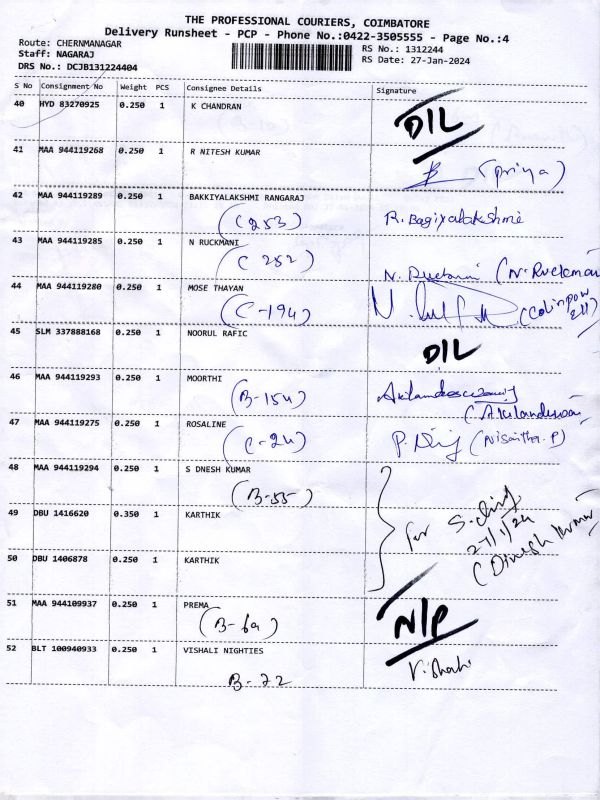 THE PROFESSIONAL COURIERS, COIMBATORE
Delivery Runsheet - PCP - Phone No.:0422-3505555 - Page No.:4
Route: CHERNMANAGAR
Staff: NAGARAJ
DRS No.: DCJB131224404
RS No.: 1312244
RS Date: 27-Jan-2024
S No Consignment No Weight PCS Consignee Details Signature
40 HYD 83270925 0.250 1 K CHANDRAN
D/L
41 MAA 944119268 0.250 1 R NITESH KUMAR
(Priya)
42 MAA 944119289 0.250 1 BAKKIYALAKSHMI RANGARAJ
(C 253) R. Bagiyalakshmi
43 MAA 944119285 0.250 1 N RUCKMANI
(C 252)
44 MAA 944119280 0.250 1 MOSE THAYAN
(C-194)
45 SLM 337888168 0.250 1 NOORUL RAFIC
D/L
46 MAA 944119293 0.250 1 MOORTHI
(B-154)
47 MAA 944119275 0.250 1 ROSALINE
(C-24)
48 MAA 944119294 0.250 1 S DNESH KUMAR
(B-55)
49 DBU 1416620 0.350 1 KARTHIK
for
27/1/24
(Dinesh Kumar)
50 DBU 1406878 0.250 1 KARTHIK
51 MAA 944109937 0.250 1 PREMA
N/P
52 BLT 100940933 0.250 1 VISHALI NIGHTIES
B-72